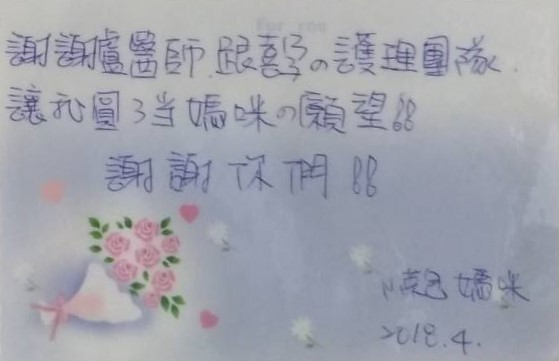 For you
謝謝盧醫師.跟喜孕の護理團隊.
讓我圓了当媽咪の願望!!
謝謝你們!!
媽咪
2018.4.